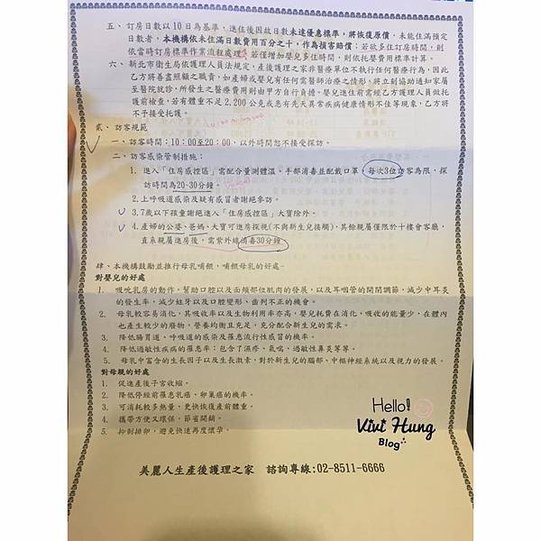 五、訂房日數以10日為基準，進住後因故日數未達優惠標準，將恢復原價，未能住滿預定
日數者，本機構依未住滿日數費用百分之十，作為損害賠償；若欲多住訂房時間，則
依當時訂房標準作業流程處理，若僅增加嬰兒多住時間，則依托嬰費用標準計算。
六、新北市衛生局依護理人員法規定，產後護理之家非醫療單位不執行任何醫療行為，因此
乙方將善盡照顧之職責，如產婦或嬰兒有任何需醫師治療之情形，將立刻協助通知家屬
至醫院就診，所發生之醫療費用則由甲方自行負擔。嬰兒進住前需經乙方護理人員做托
護前檢查，若有體重不足2,200公克或患有先天異常疾病健康情形不佳等現象，乙方將
不予接受托護。
貳、訪客規範
一、訪客時間：10：00至20：00，以外時間恕不接受探訪。
二、訪客感染管制措施：
1.進入「住房感控區」需配合量測體溫、手部消毒並配戴口罩，每次3位訪客為限，探
訪時間為20-30分鐘。
2.上呼吸道感染及疑有感冒者謝絕參訪。
3.7歲以下孩童謝絕進入「住房感控區」大寶除外。
4.產婦的公婆、爸媽、大寶可進房探視(不與新生兒接觸)，其餘親屬僅限於十樓會客廳，
直系親屬進房後，需紫外線消毒30分鐘。
肆、本機構鼓勵並推行母乳哺餵，哺餵母乳的好處-
對嬰兒的好處
1. 吸吮乳房的動作，幫助口腔以及面頰部位肌肉的發展，以及耳咽管的開閉調節，減少中耳炎
的發生率，減少蛀牙以及口腔變形、齒列不正的機會。
2. 母乳較容易消化，其吸收率以及生物利用率亦高，嬰兒耗費在消化、吸收的能量少，在體內
也產生較少的廢物，營養均衡且充足，充分配合新生兒的需求。
3. 降低腸胃道、呼吸道的感染及罹患流行性感冒的機率。
4. 降低過敏性疾病的罹患率：包含了濕疹、氣喘、過敏性鼻炎等等。
5. 母乳中富含的生長因子以及生長激素，對於新生兒的腦部、中樞神經系統以及視力的發展。
對母親的好處
1. 促進產後子宮收縮。
2. 降低停經前罹患乳癌、卵巢癌的機率。
3. 可消耗較多熱量，更快恢復產前體重。
4. 攜帶方便又環保，節省開銷。
5. 抑制排卵，避免快速再度懷孕。
Hello!
Vivi Hung
Blog
美麗人生產後護理之家 諮詢專線:02-8511-6666